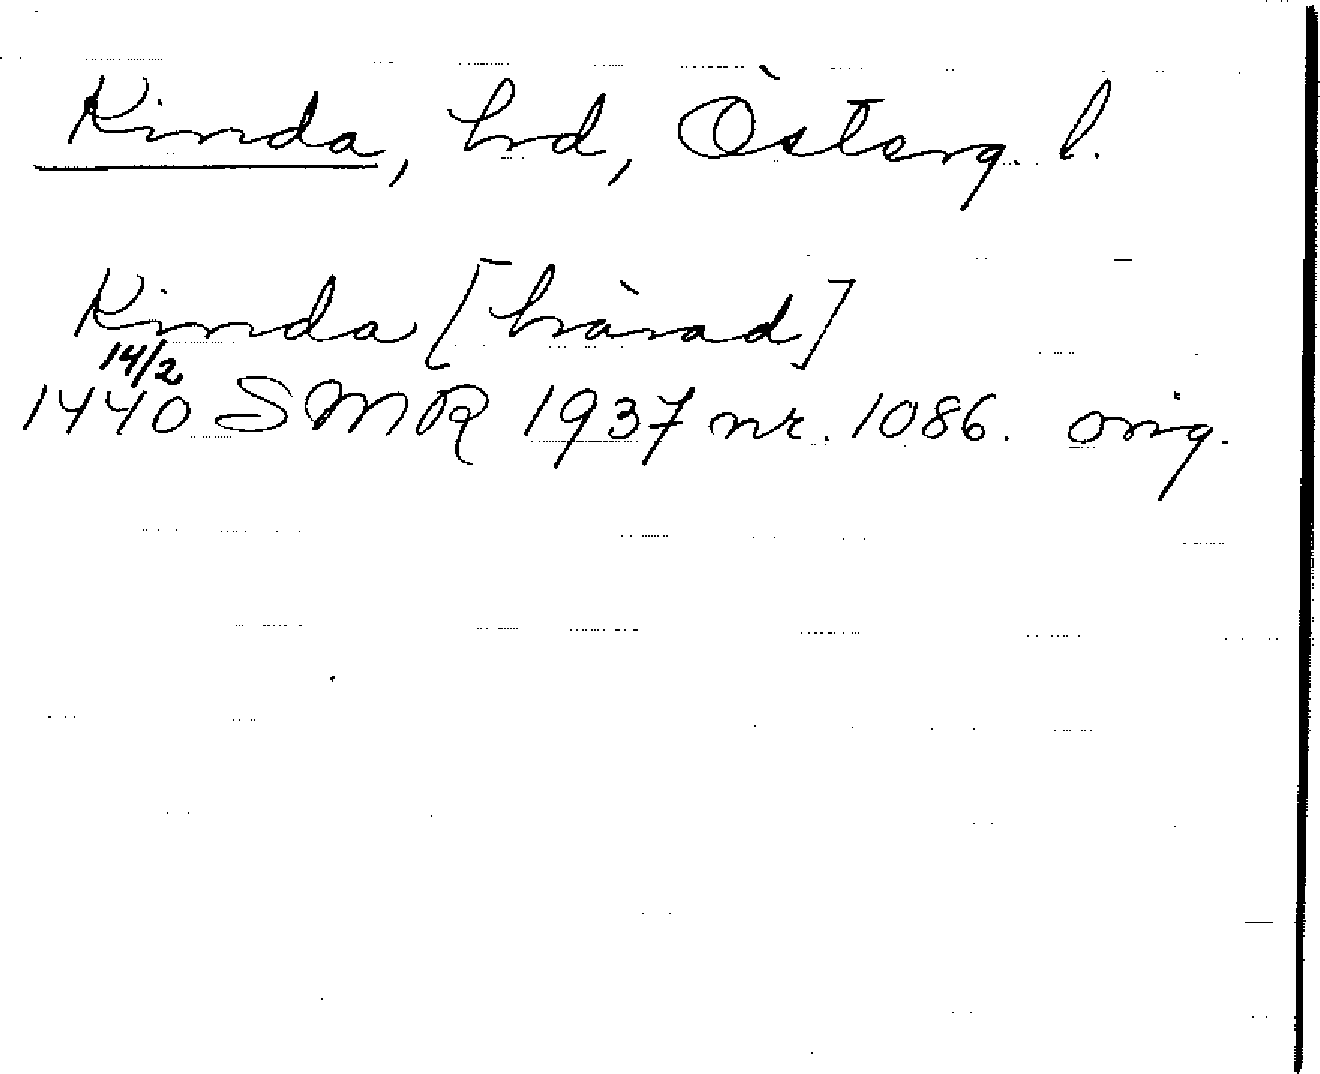 Kinda, hd, Österg. l.
Kinda [härad]
14/2
1440 SMR 1937 nr. 1086. orig.